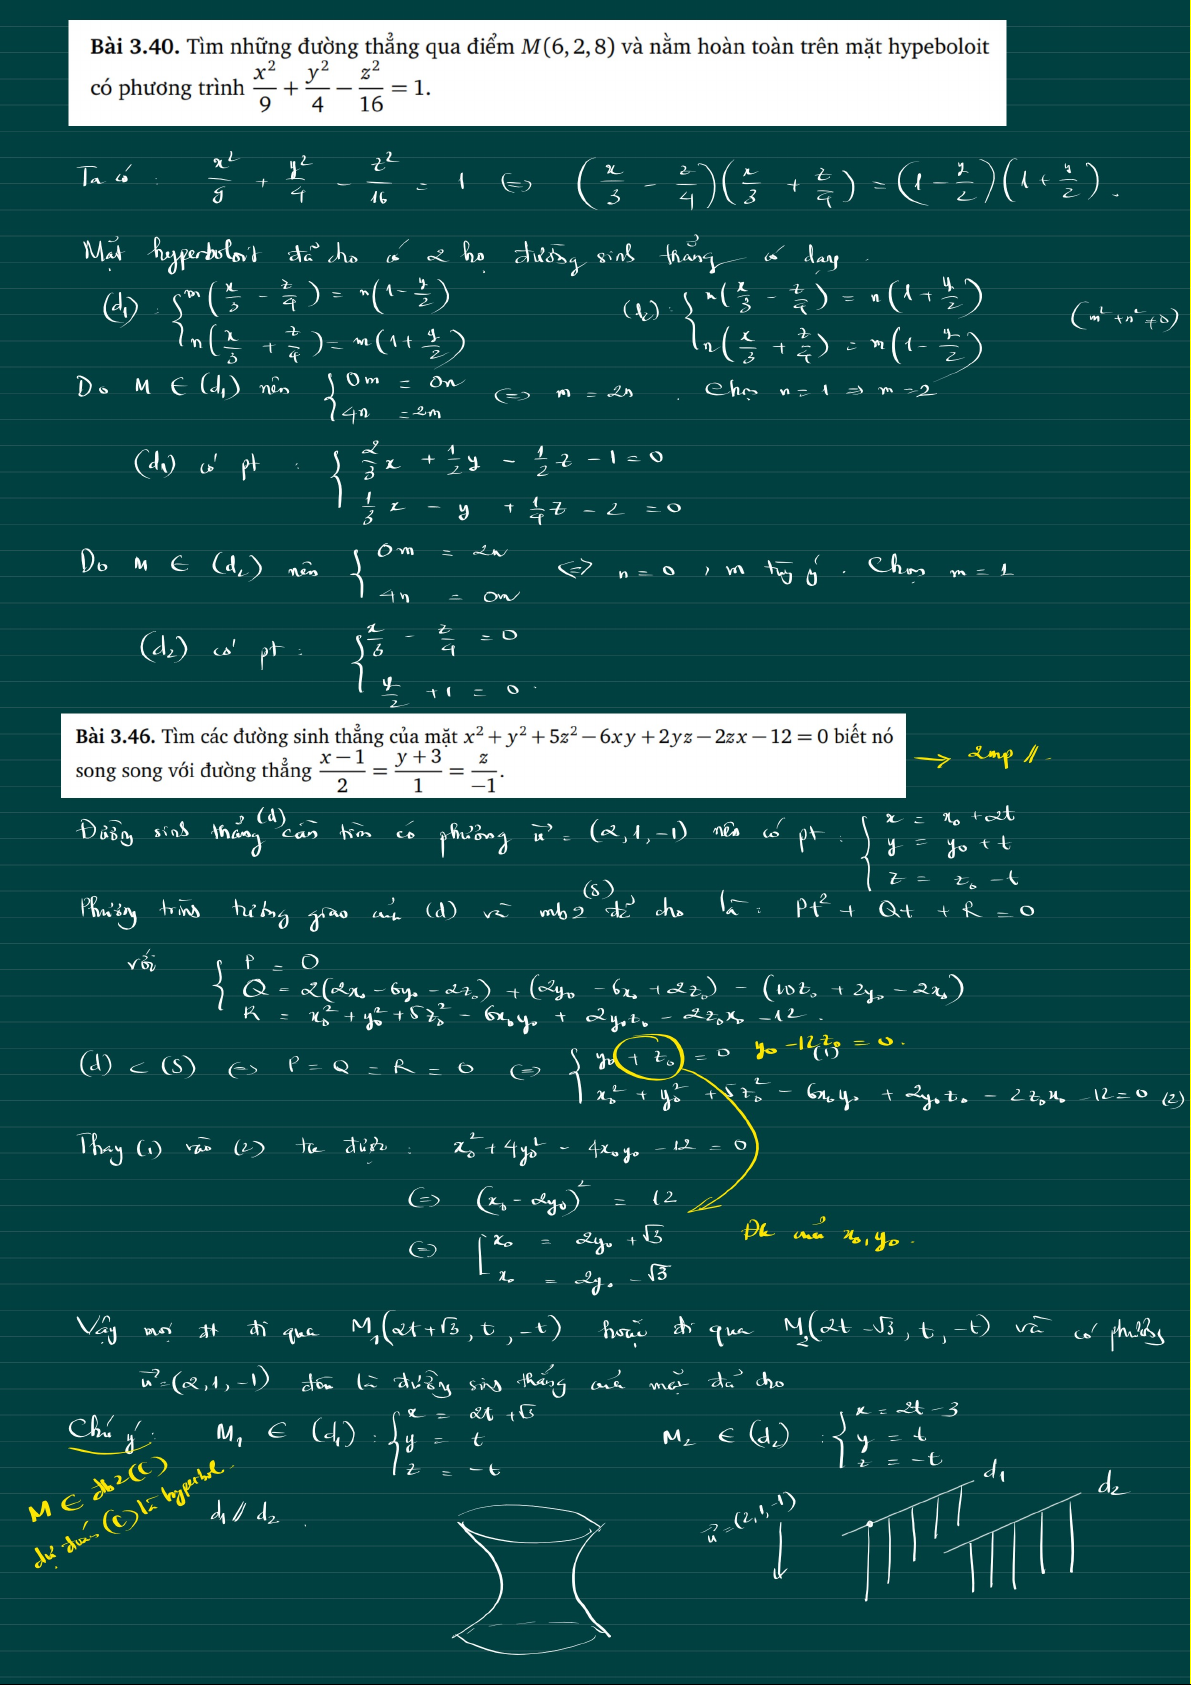 Bài 3.40. Tìm những đường thẳng qua điểm M(6,2,8) và nằm hoàn toàn trên mặt hypeboloit
có phương trình x²/9 + y²/4 − z²/16 = 1.
Ta có : x²/9 + y²/4 − z²/16 = 1 ⇔ (x/3 − z/4)(x/3 + z/4) = (1 − y/2)(1 + y/2).
Mặt hyperboloit đã cho có 2 họ đường sinh thẳng có dạng.
(d₁) : { m(x/3 − z/4) = n(1 − y/2) (d₂): { m(x/3 − z/4) = n(1 + y/2) (m² + n² ≠ 0)
n(x/3 + z/4) = m(1 + y/2) n(x/3 + z/4) = m(1 − y/2)
Do M ∈ (d₁) nên { 0m = 0n ⇔ m = 2n. Chọn n = 1 ⇒ m = 2
4n = 2m
(d₁) có pt : { 2/3 x + 1/2 y − 1/2 z − 1 = 0
1/3 x − y + 1/4 z − 2 = 0
Do M ∈ (d₂) nên { 0m = 2n ⇔ n = 0, m tuỳ ý. Chọn m = 1
4n = 0m
(d₂) có pt : { x/3 − z/4 = 0
y/2 + 1 = 0.
Bài 3.46. Tìm các đường sinh thẳng của mặt x² + y² + 5z² − 6xy + 2yz − 2zx − 12 = 0 biết nó
song song với đường thẳng (x−1)/2 = (y+3)/1 = z/−1.
→ 2mp //.
Đường sinh thẳng (d) cần tìm có phương u⃗ = (2,1,−1) nên có pt : { x = x₀ + 2t
y = y₀ + t
z = z₀ − t
Phương trình tương giao của (d) và mb2 (S) đã cho là : Pt² + Qt + R = 0
với { P = 0
Q = 2(2x₀ − 6y₀ − 2z₀) + (2y₀ − 6x₀ + 2z₀) − (10z₀ + 2y₀ − 2x₀)
R = x₀² + y₀² + 5z₀² − 6x₀y₀ + 2y₀z₀ − 2z₀x₀ − 12.
(d) ⊂ (S) ⇔ P = Q = R = 0 ⇔ { y₀ + z₀ = 0 (1) y₀ − 12z₀ = 0.
x₀² + y₀² + 5z₀² − 6x₀y₀ + 2y₀z₀ − 2z₀x₀ − 12 = 0 (2)
Thay (1) vào (2) ta được : x₀² + 4y₀² − 4x₀y₀ − 12 = 0
⇔ (x₀ − 2y₀)² = 12
⇔ [ x₀ = 2y₀ + √3
x₀ = 2y₀ − √3
Đk của x₀, y₀.
Vậy mọi đt đi qua M₁(2t+√3, t, −t) hoặc đi qua M₂(2t−√3, t, −t) và có phương
u⃗ = (2,1,−1) đều là đường sinh thẳng của mặt đã cho
Chú ý: M₁ ∈ (d₁) : { x = 2t + √3 M₂ ∈ (d₂) : { x = 2t − 3
y = t y = t
z = −t z = −t
M ∈ đb2 (C)
(C) là hyperbol.
d₁ // d₂.
u⃗ = (2,1,−1)
d₁
d₂